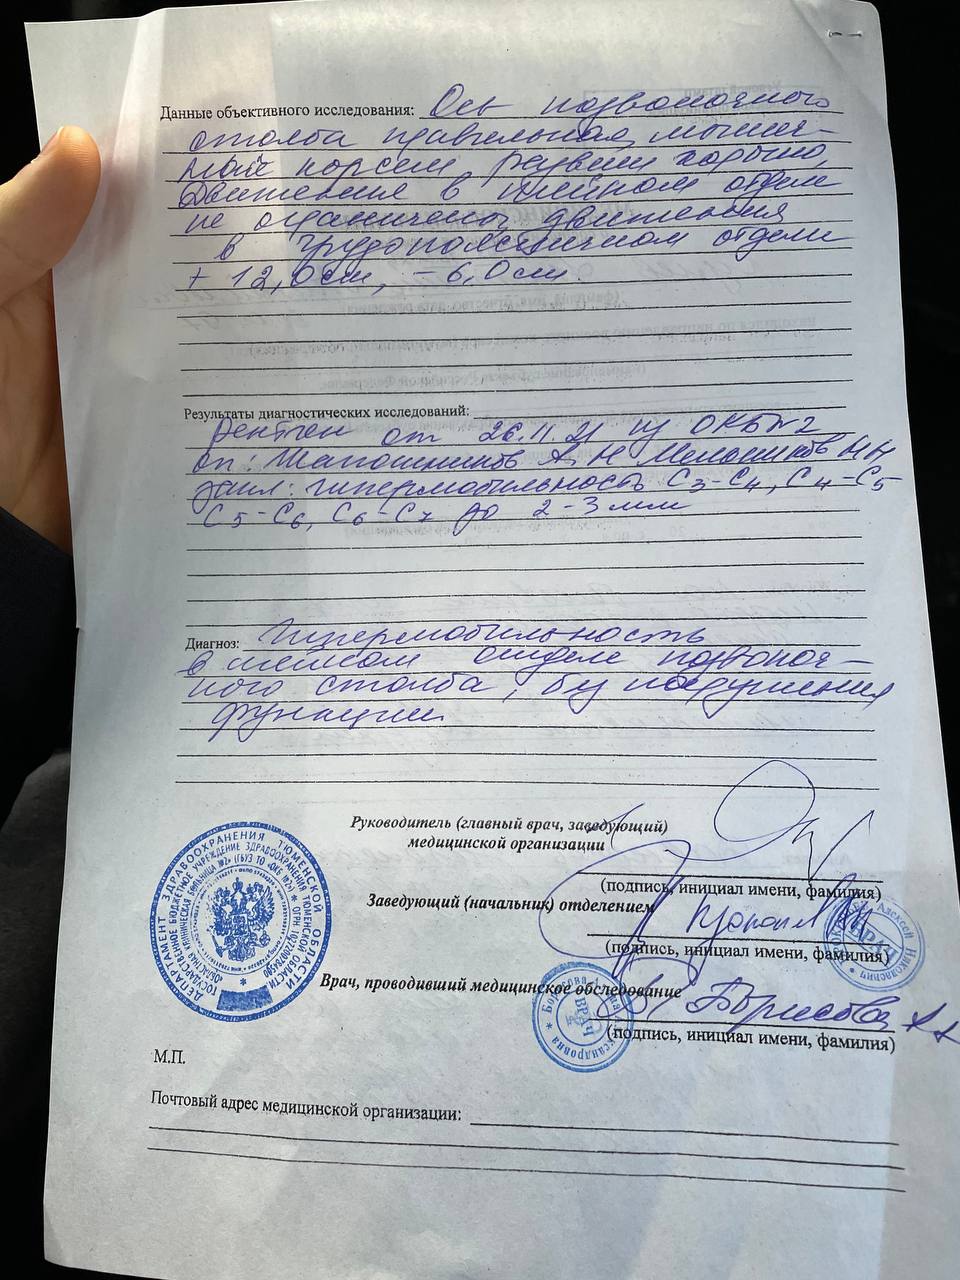 Данные объективного исследования: Ось позвоночного
столба правильная, мышеч-
ный корсет развит хорошо,
Движения в шейном отделе
не ограничены, движения
в грудопоясничном отделе
+ 12,0см, – 6,0см.
Результаты диагностических исследований:
Рентген от 26.11.21 из ОКБ№2
оп: Шапошников А, Н Мельников НН
закл: гипермобильность С3-С4, С4-С5
С5-С6, С6-С7 до 2-3мм
Диагноз: Гипермобильность
в шейном отделе позвоноч-
ного столба, без нарушения
функции
Руководитель (главный врач, заведующий)
медицинской организации
(подпись, инициал имени, фамилия)
Заведующий (начальник) отделением
(подпись, инициал имени, фамилия)
Врач, проводивший медицинское обследование Борисова
(подпись, инициал имени, фамилия)
ДЕПАРТАМЕНТ ЗДРАВООХРАНЕНИЯ ТЮМЕНСКОЙ ОБЛАСТИ
ГОСУДАРСТВЕННОЕ БЮДЖЕТНОЕ УЧРЕЖДЕНИЕ ЗДРАВООХРАНЕНИЯ ТЮМЕНСКОЙ ОБЛАСТИ
«ОБЛАСТНАЯ КЛИНИЧЕСКАЯ БОЛЬНИЦА №2» (ГБУЗ ТО «ОКБ №2»)
Алексей Николаевич
ВРАЧ
Борисова Александровна
ВРАЧ
М.П.
Почтовый адрес медицинской организации: